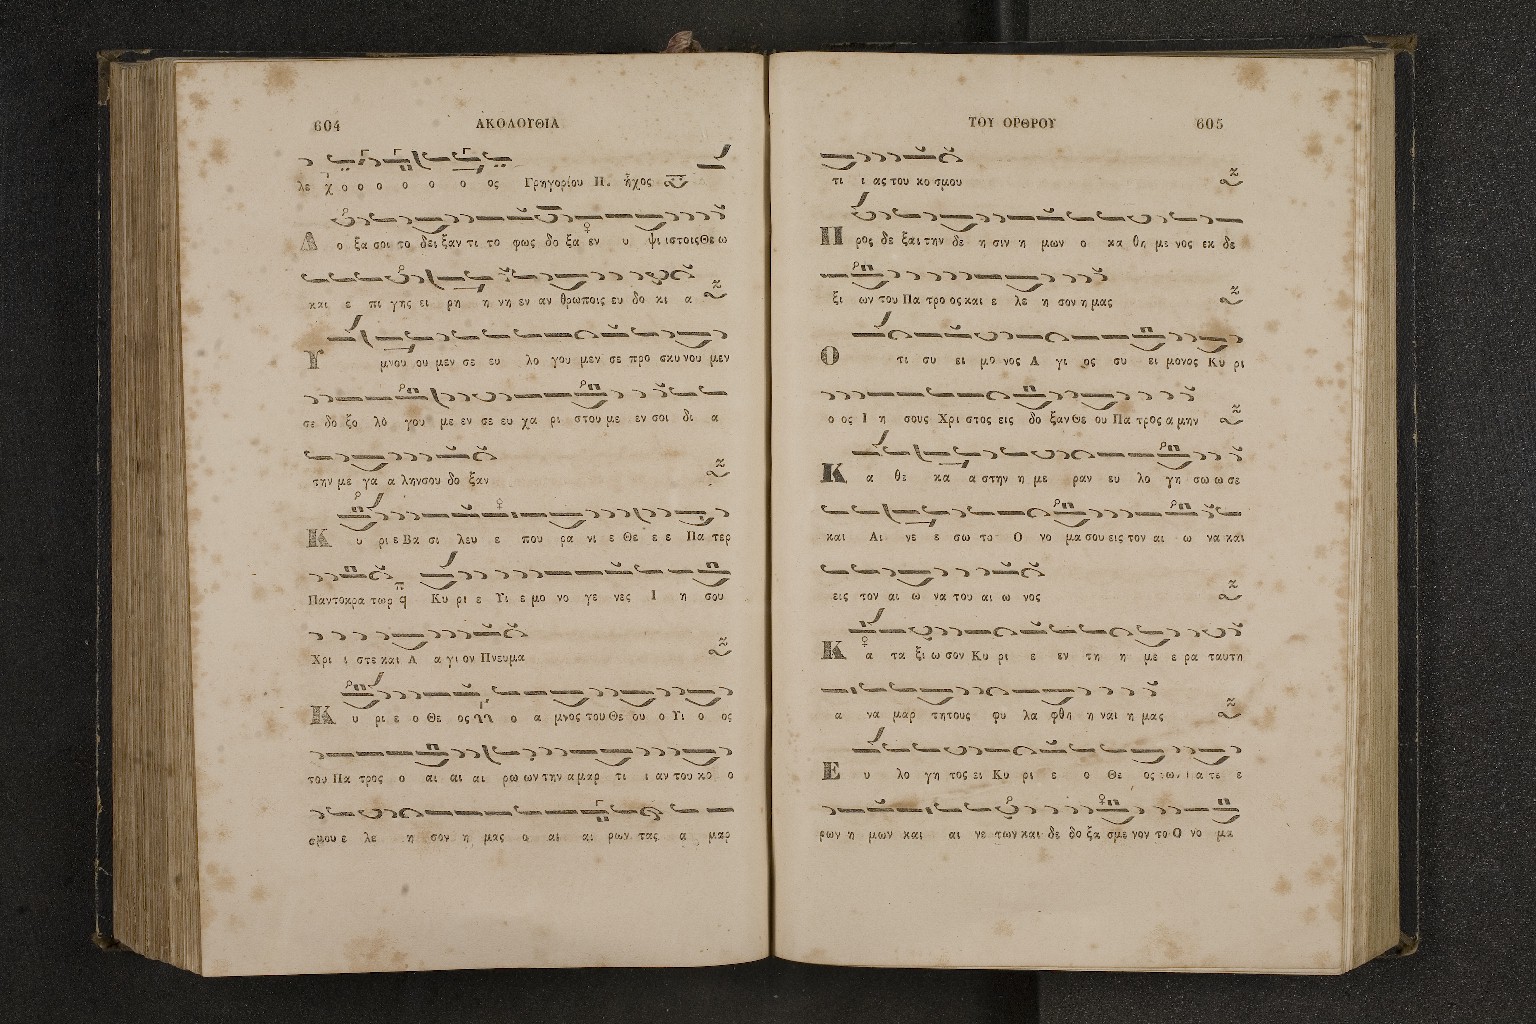 604 ΑΚΟΛΟΥΘΙΑ
λε χο ο ο ο ο ο ο ος Γρηγορίου Π. ἦχος
Δ ο ξα σοι το δει ξαν τι το φως δο ξα εν υ ψι ιστοις Θε ω
και ε πι γης ει ρη η νη εν αν θρωποις ευ δο κι α
Υ μνου ου μεν σε ευ λο γου μεν σε προ σκυ νου μεν
σε δο ξο λο γου με εν σε ευ χα ρι στου με εν σοι δι α
την με γα α λην σου δο ξαν
Κ υ ρι ε Βα σι λευ ε που ρα νι ε Θε ε ε Πα τερ
Παντοκρα τωρ Κυ ρι ε Υι ε μο νο γε νες Ι η σου
Χρι ι στε και Α α γι ον Πνευμα
Κ υ ρι ε ο Θε ος ο α μνος του Θε ου ο Υι ο ος
του Πα τρος ο αι αι αι ρω ων την α μαρ τι ι αν του κο ο
σμου ε λε η σον η μας ο αι αι ρων τας α μαρ
ΤΟΥ ΟΡΘΡΟΥ 605
τι ι ας του κο σμου
Π ρος δε ξαι την δε η σιν η μων ο κα θη με νος εκ δε
ξι ων του Πα τρο ος και ε λε η σον η μας
Ο τι συ ει μο νος Α γι ος συ ει μονος Κυ ρι
ο ος Ι η σους Χρι στος εις δο ξαν Θε ου Πα τρος α μην
Κ α θε κα α στην η με ραν ευ λο γη σω ω σε
και Αι νε ε σω το Ο νο μα σου εις τον αι ω να και
εις τον αι ω να του αι ω νος
Κ α τα ξι ω σον Κυ ρι ε εν τη η με ε ρα ταυτη
α να μαρ τητους φυ λα φθη η ναι η μας
Ε υ λο γη τος ει Κυ ρι ε ο Θε ος των πα τε ε
ρων η μων και αι νε των και δε δο ξα σμε νον το Ο νο μα